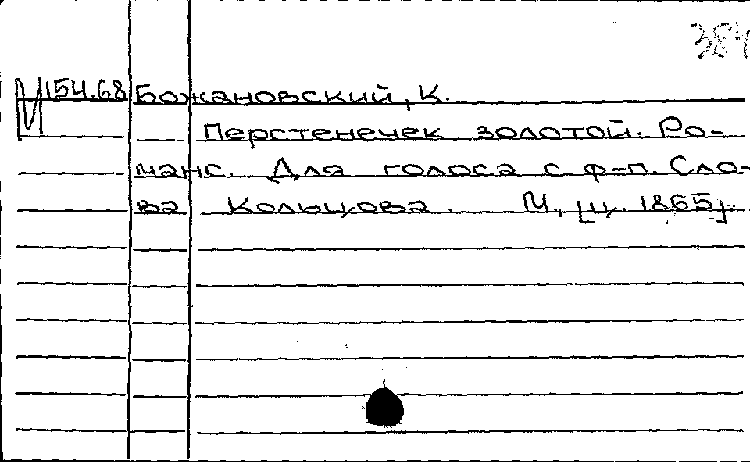 384
М 154.68 Божановский, К.
Перстенечек золотой. Ро-
манс. Для голоса с ф-п. Сло-
ва Кольцова. М, [ц. 1865].